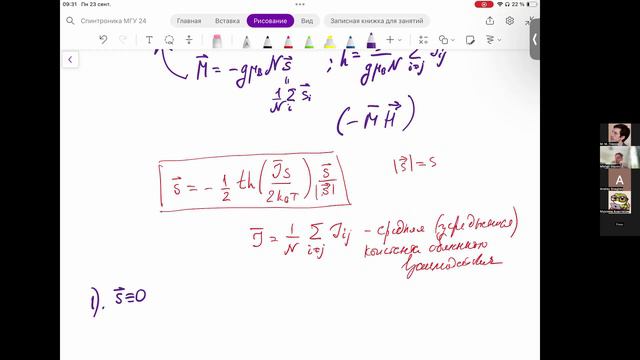 09:31 Пн 23 сент.
22 %
Спинтроника МГУ 24
Главная Вставка Рисование Вид Записная книжка для занятий
M⃗ = -gμ_B N s⃗ ; h =
1/N Σ_i s⃗_i
gμ_B N Σ_{i≠j} J_ij
(-M⃗ H⃗)
s⃗ = - 1/2 th( J̄s / 2k_БT ) s⃗/|s⃗|
|s⃗| = s
J̄ = 1/N Σ_{i≠j} J_ij - средняя (усредненная)
константа обменного
взаимодействия
1). s⃗ ≡ 0
A